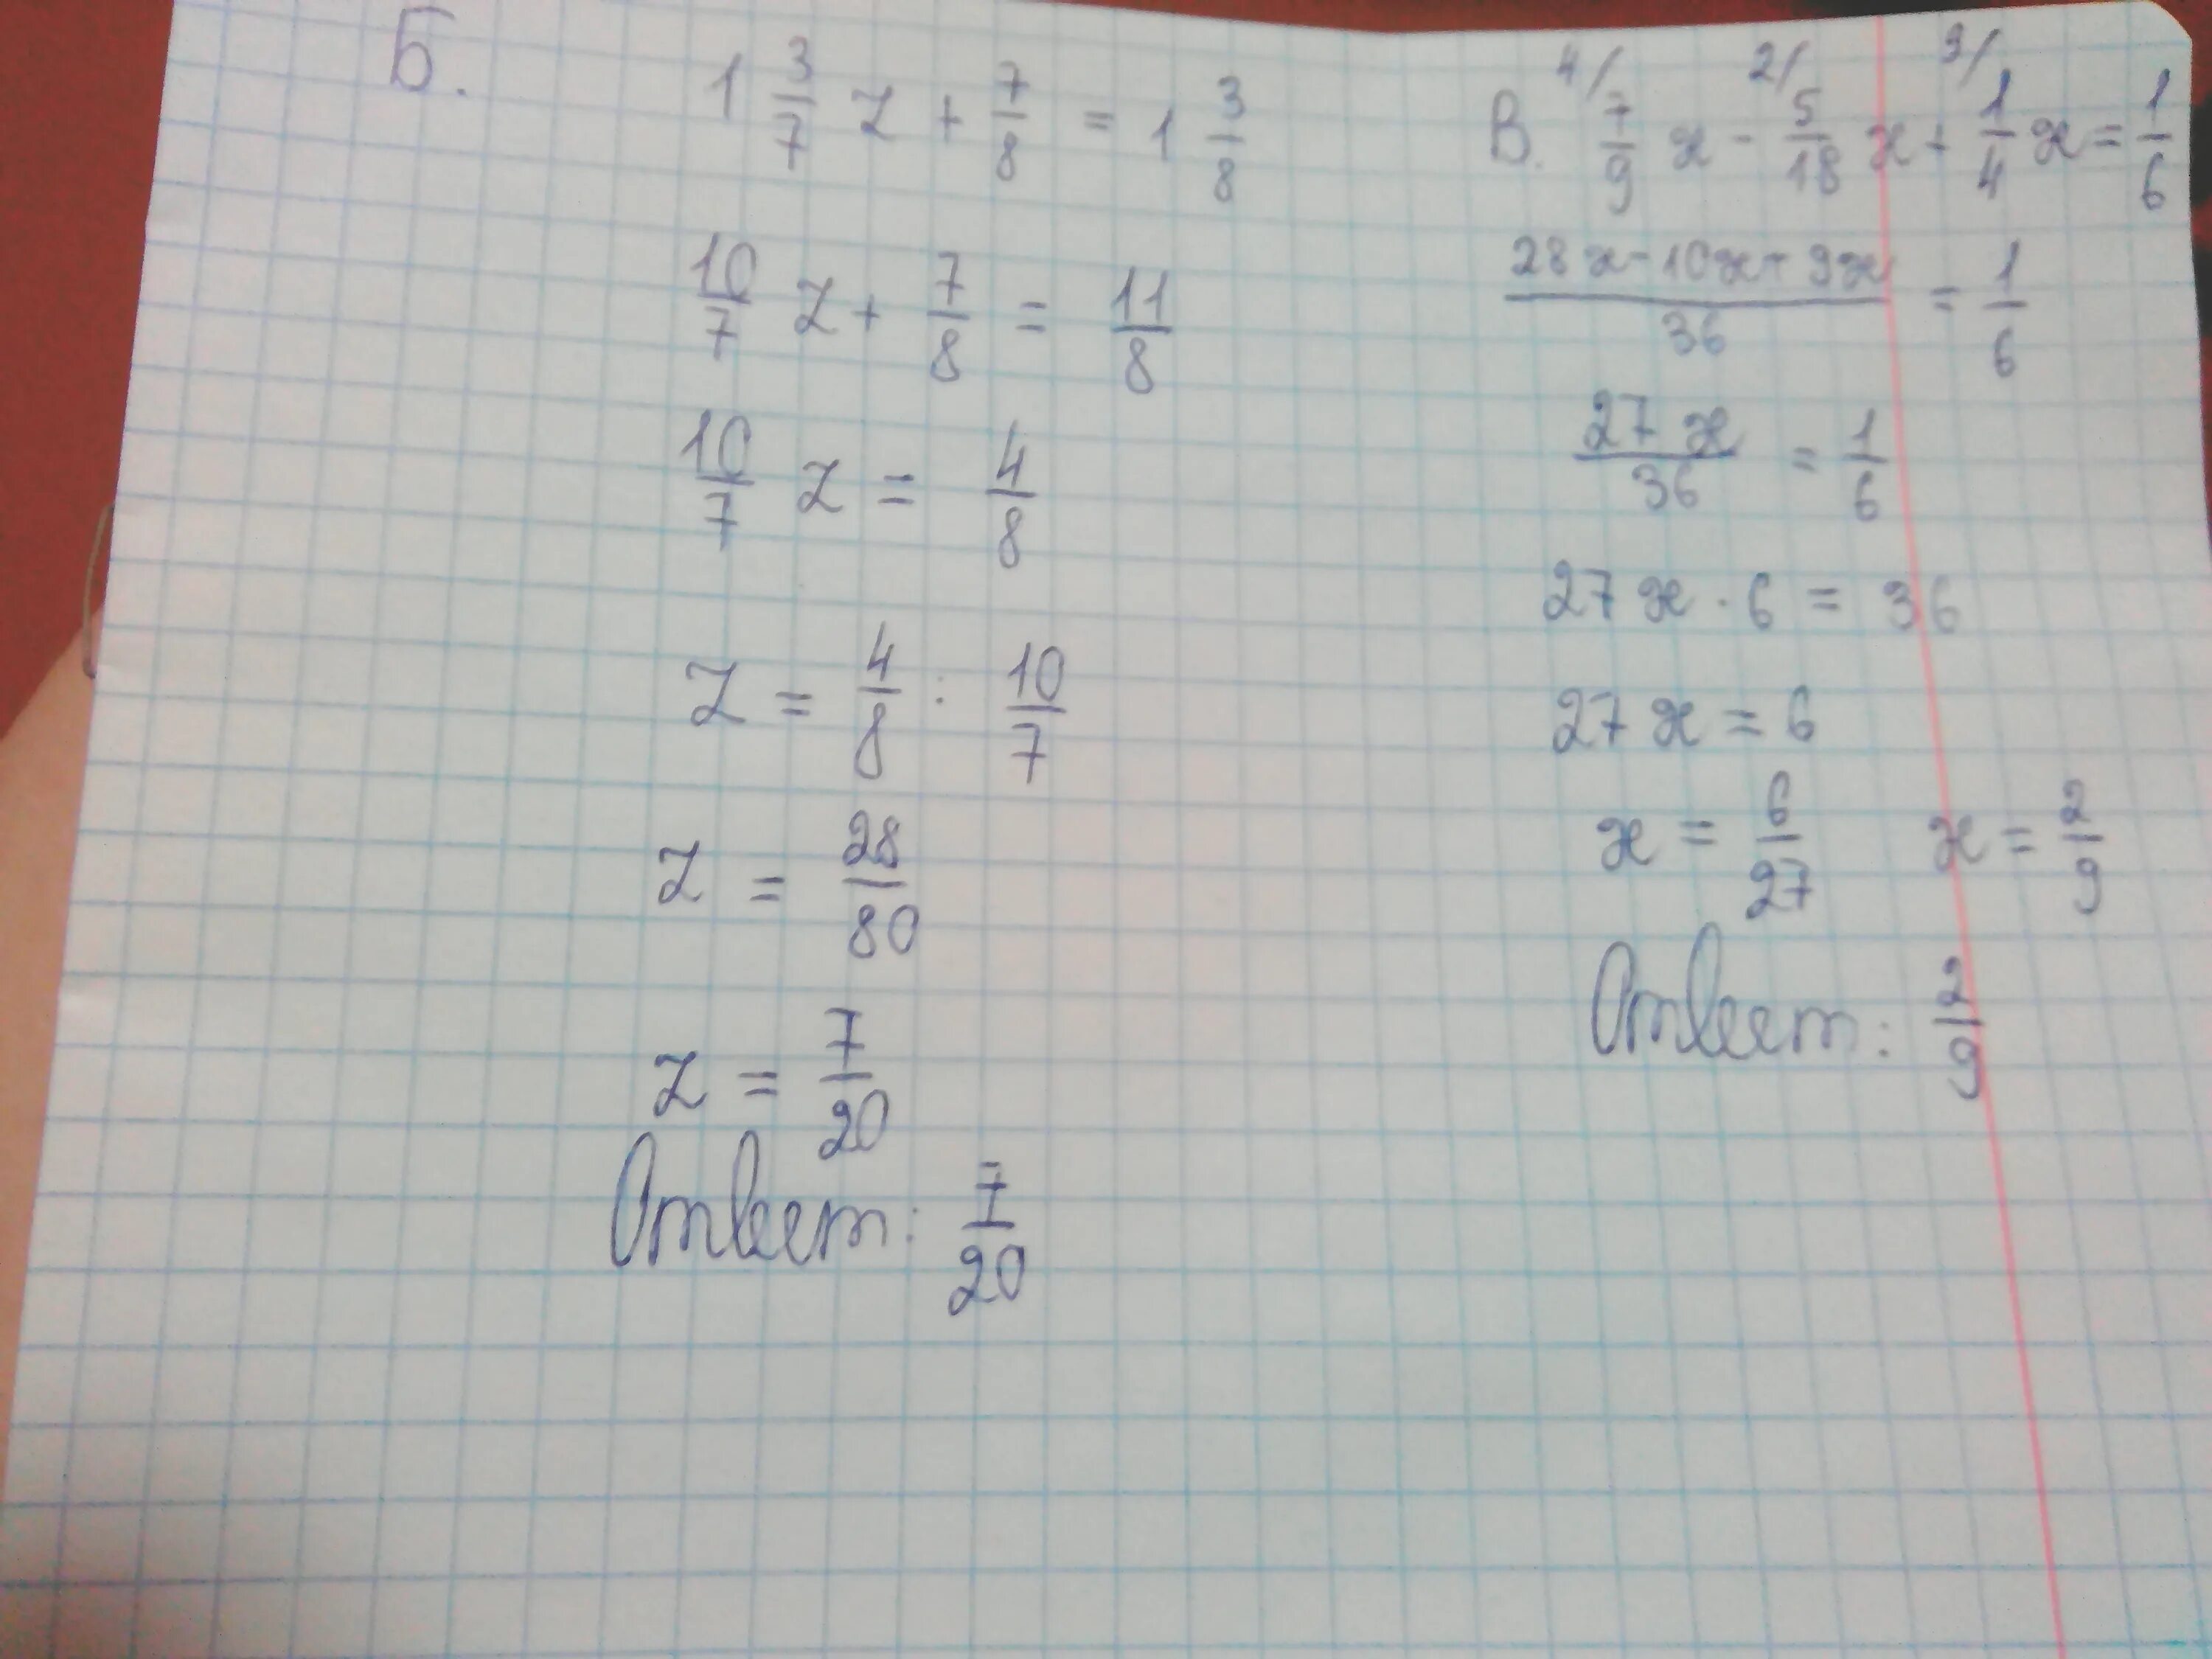 Б.
1 3/7 z + 7/8 = 1 3/8
10/7 z + 7/8 = 11/8
10/7 z = 4/8
z = 4/8 : 10/7
z = 28/80
z = 7/20
Ответ: 7/20
4/ 2/ 9/
В. 7/9 x - 5/18 x + 1/4 x = 1/6
28x - 10x + 9x / 36 = 1/6
27x/36 = 1/6
27x · 6 = 36
27x = 6
x = 6/27 x = 2/9
Ответ: 2/9